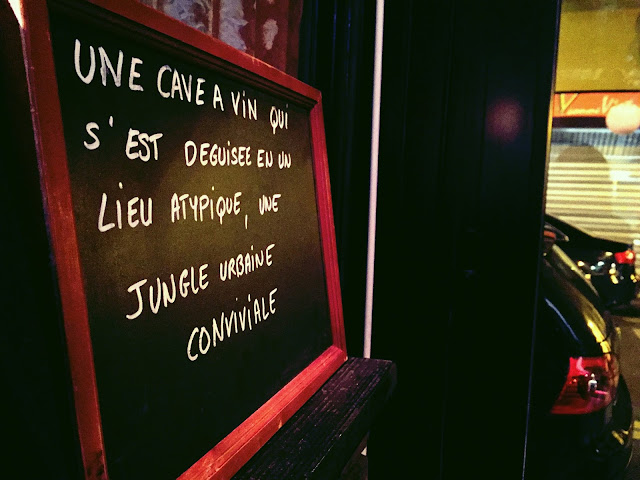 UNE CAVE A ViN QUi
S'EST DEGUISEE EN UN
LiEU ATYPiQUE, UNE
JUNGLE URBAiNE
CONViViALE